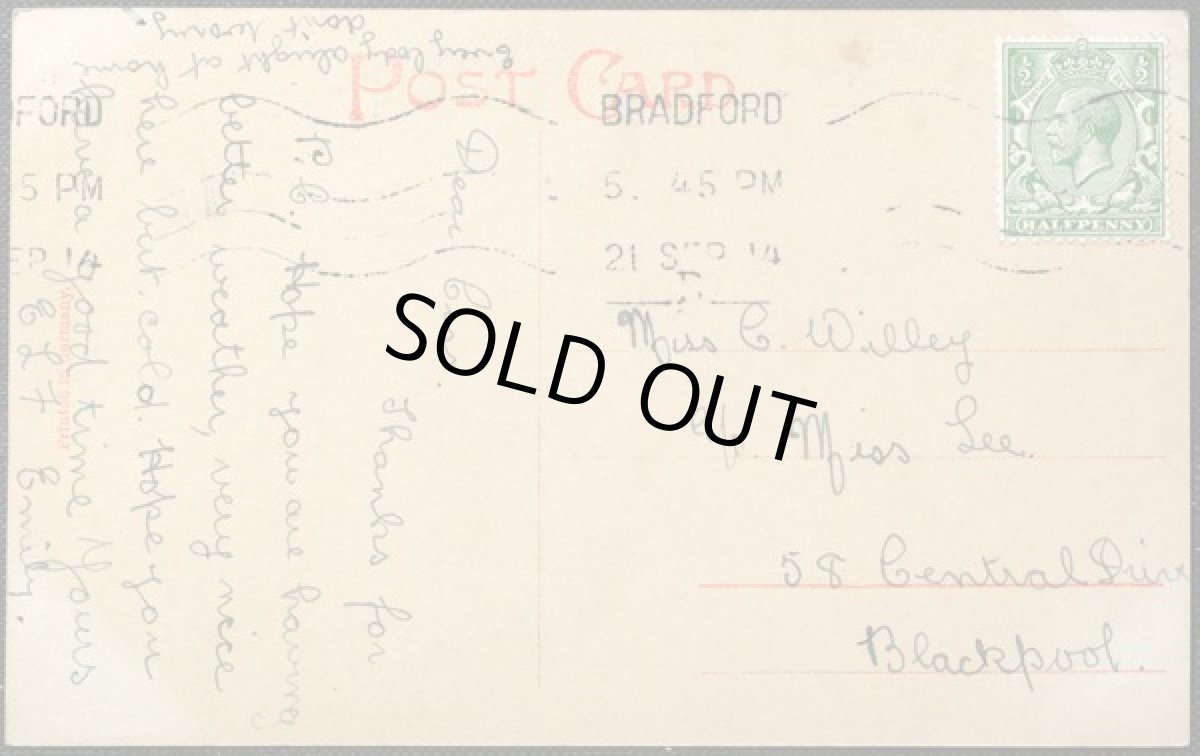 POST CARD
BRADFORD
5. 45 PM
21 SEP 14
FORD
5 PM
EP 14
½ ½
HALFPENNY
Miss C. Willey
Miss Lee.
58 Central Drive
Blackpool.
SOLD OUT
Dear
Thanks for
P.C. Hope you are having
better weather, very nice
here but cold. Hope you
have a good time Yours
E L F Emily.
Every body alright at home
don't worry.
Printed in Germany